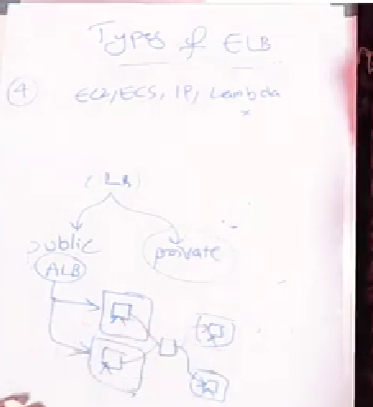 Types of ELB
④ EC2, ECS, IP, Lambda
x
(LB)
public
private
ALB